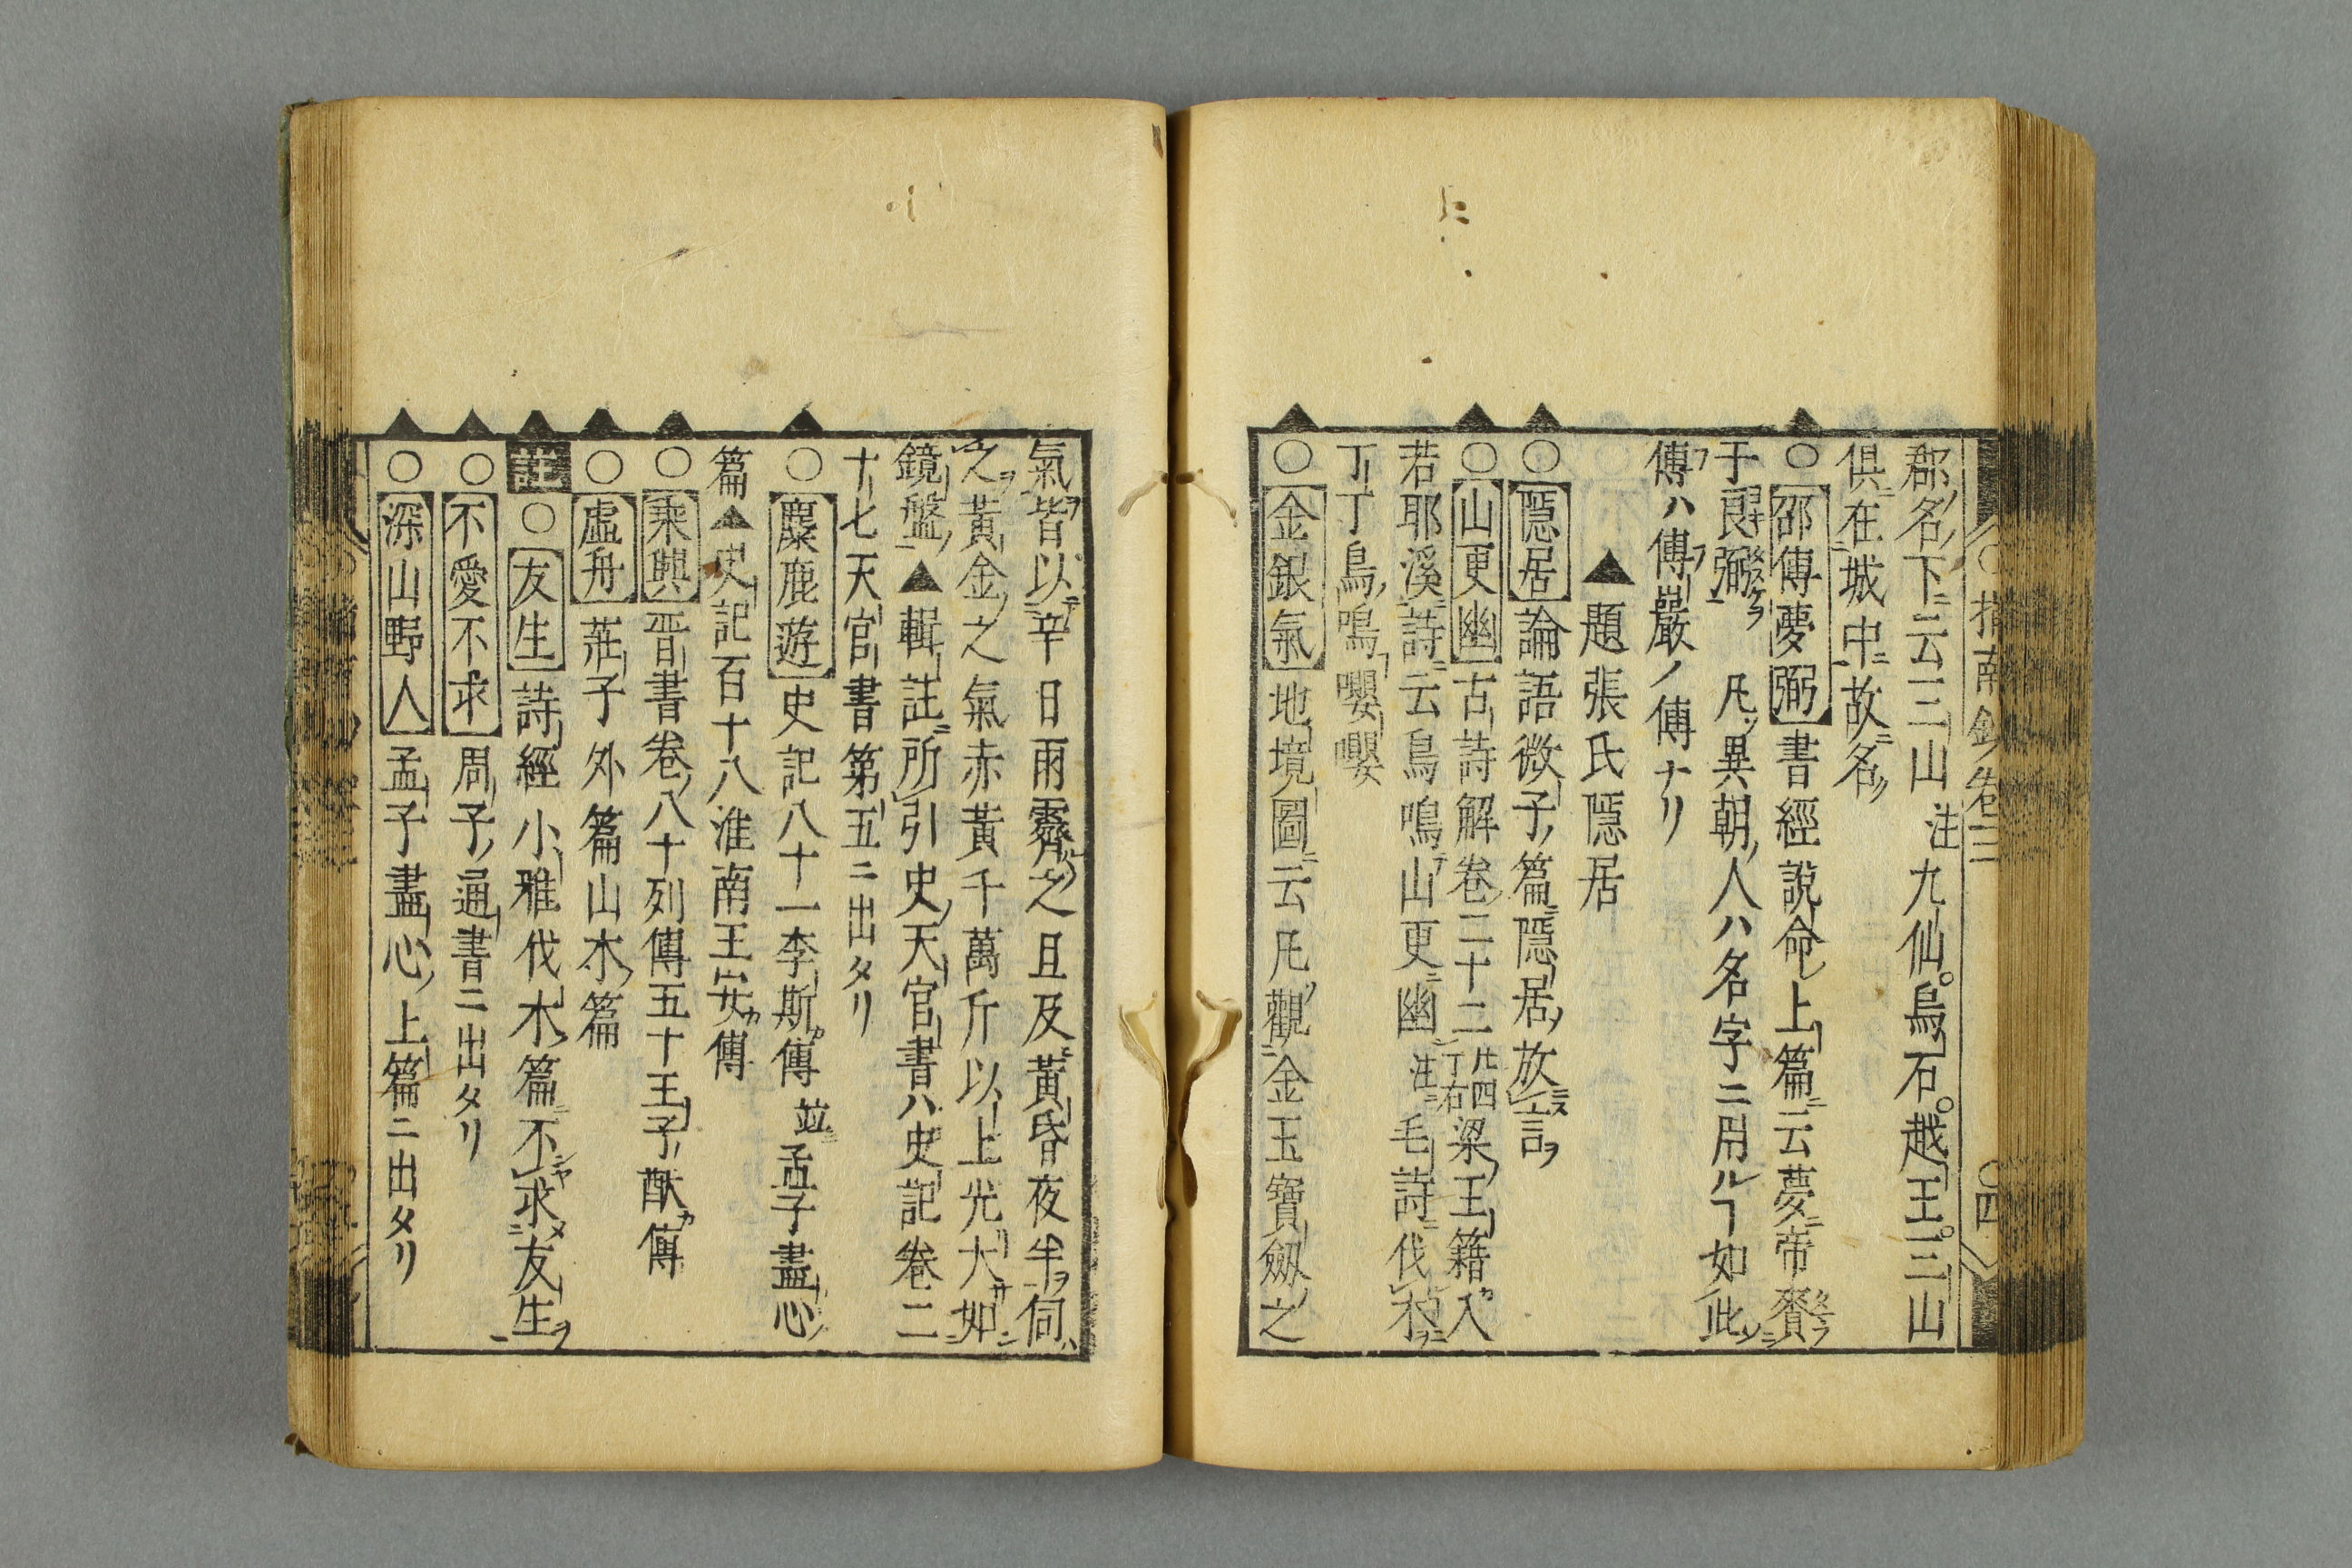 郡名下云三山注九仙烏石越王三山
俱在城中故名
○邵傳夢弼書經說命上篇云夢帝賚
于良弼凡異朝人ハ名字ニ用ルヿ如此
傳ハ傅巖ノ傅ナリ
▲題張氏隱居
○隱居論語微子篇隱居放言
○山更幽古詩解卷二十二廿四丁右梁王籍入
若耶溪詩云鳥鳴山更幽注毛詩伐木
丁丁鳥鳴嚶嚶
○金銀氣地境圖云凡觀金玉寶劔之
氣皆以辛日雨霽之且及黃昏夜半伺
之黃金之氣赤黃千萬斤以上光大如
鏡盤▲輯註所引史天官書ハ史記卷二
十七天官書第五ニ出タリ
○麋鹿遊史記八十一李斯傳並孟子盡心
篇▲史記百十八淮南王安傳
○乘興晋書卷八十列傳五十王子猷傳
○虛舟莊子外篇山木篇
註○友生詩經小雅伐木篇不求友生
○不愛不求周子通書ニ出タリ
○深山野人孟子盡心上篇ニ出タリ